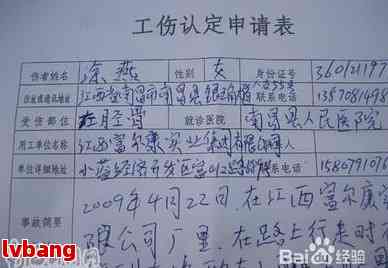 工伤认定申请表
伤者姓名 涂燕 性别 女 身份证号 360121197
住址或通讯地址 江西省南昌市南昌县 联系电话 1357081498
受伤部位 就诊医院 南昌县人民医院
用工单位名称 江西富尔康实业集团有限公司
单位详细地址 小蓝经济开发区富山 路 联系电话 1580791016
事故简要 2009年4月22日,在江西富尔康实
限公司厂里,在路上行走时
lvbang
Baidu百科